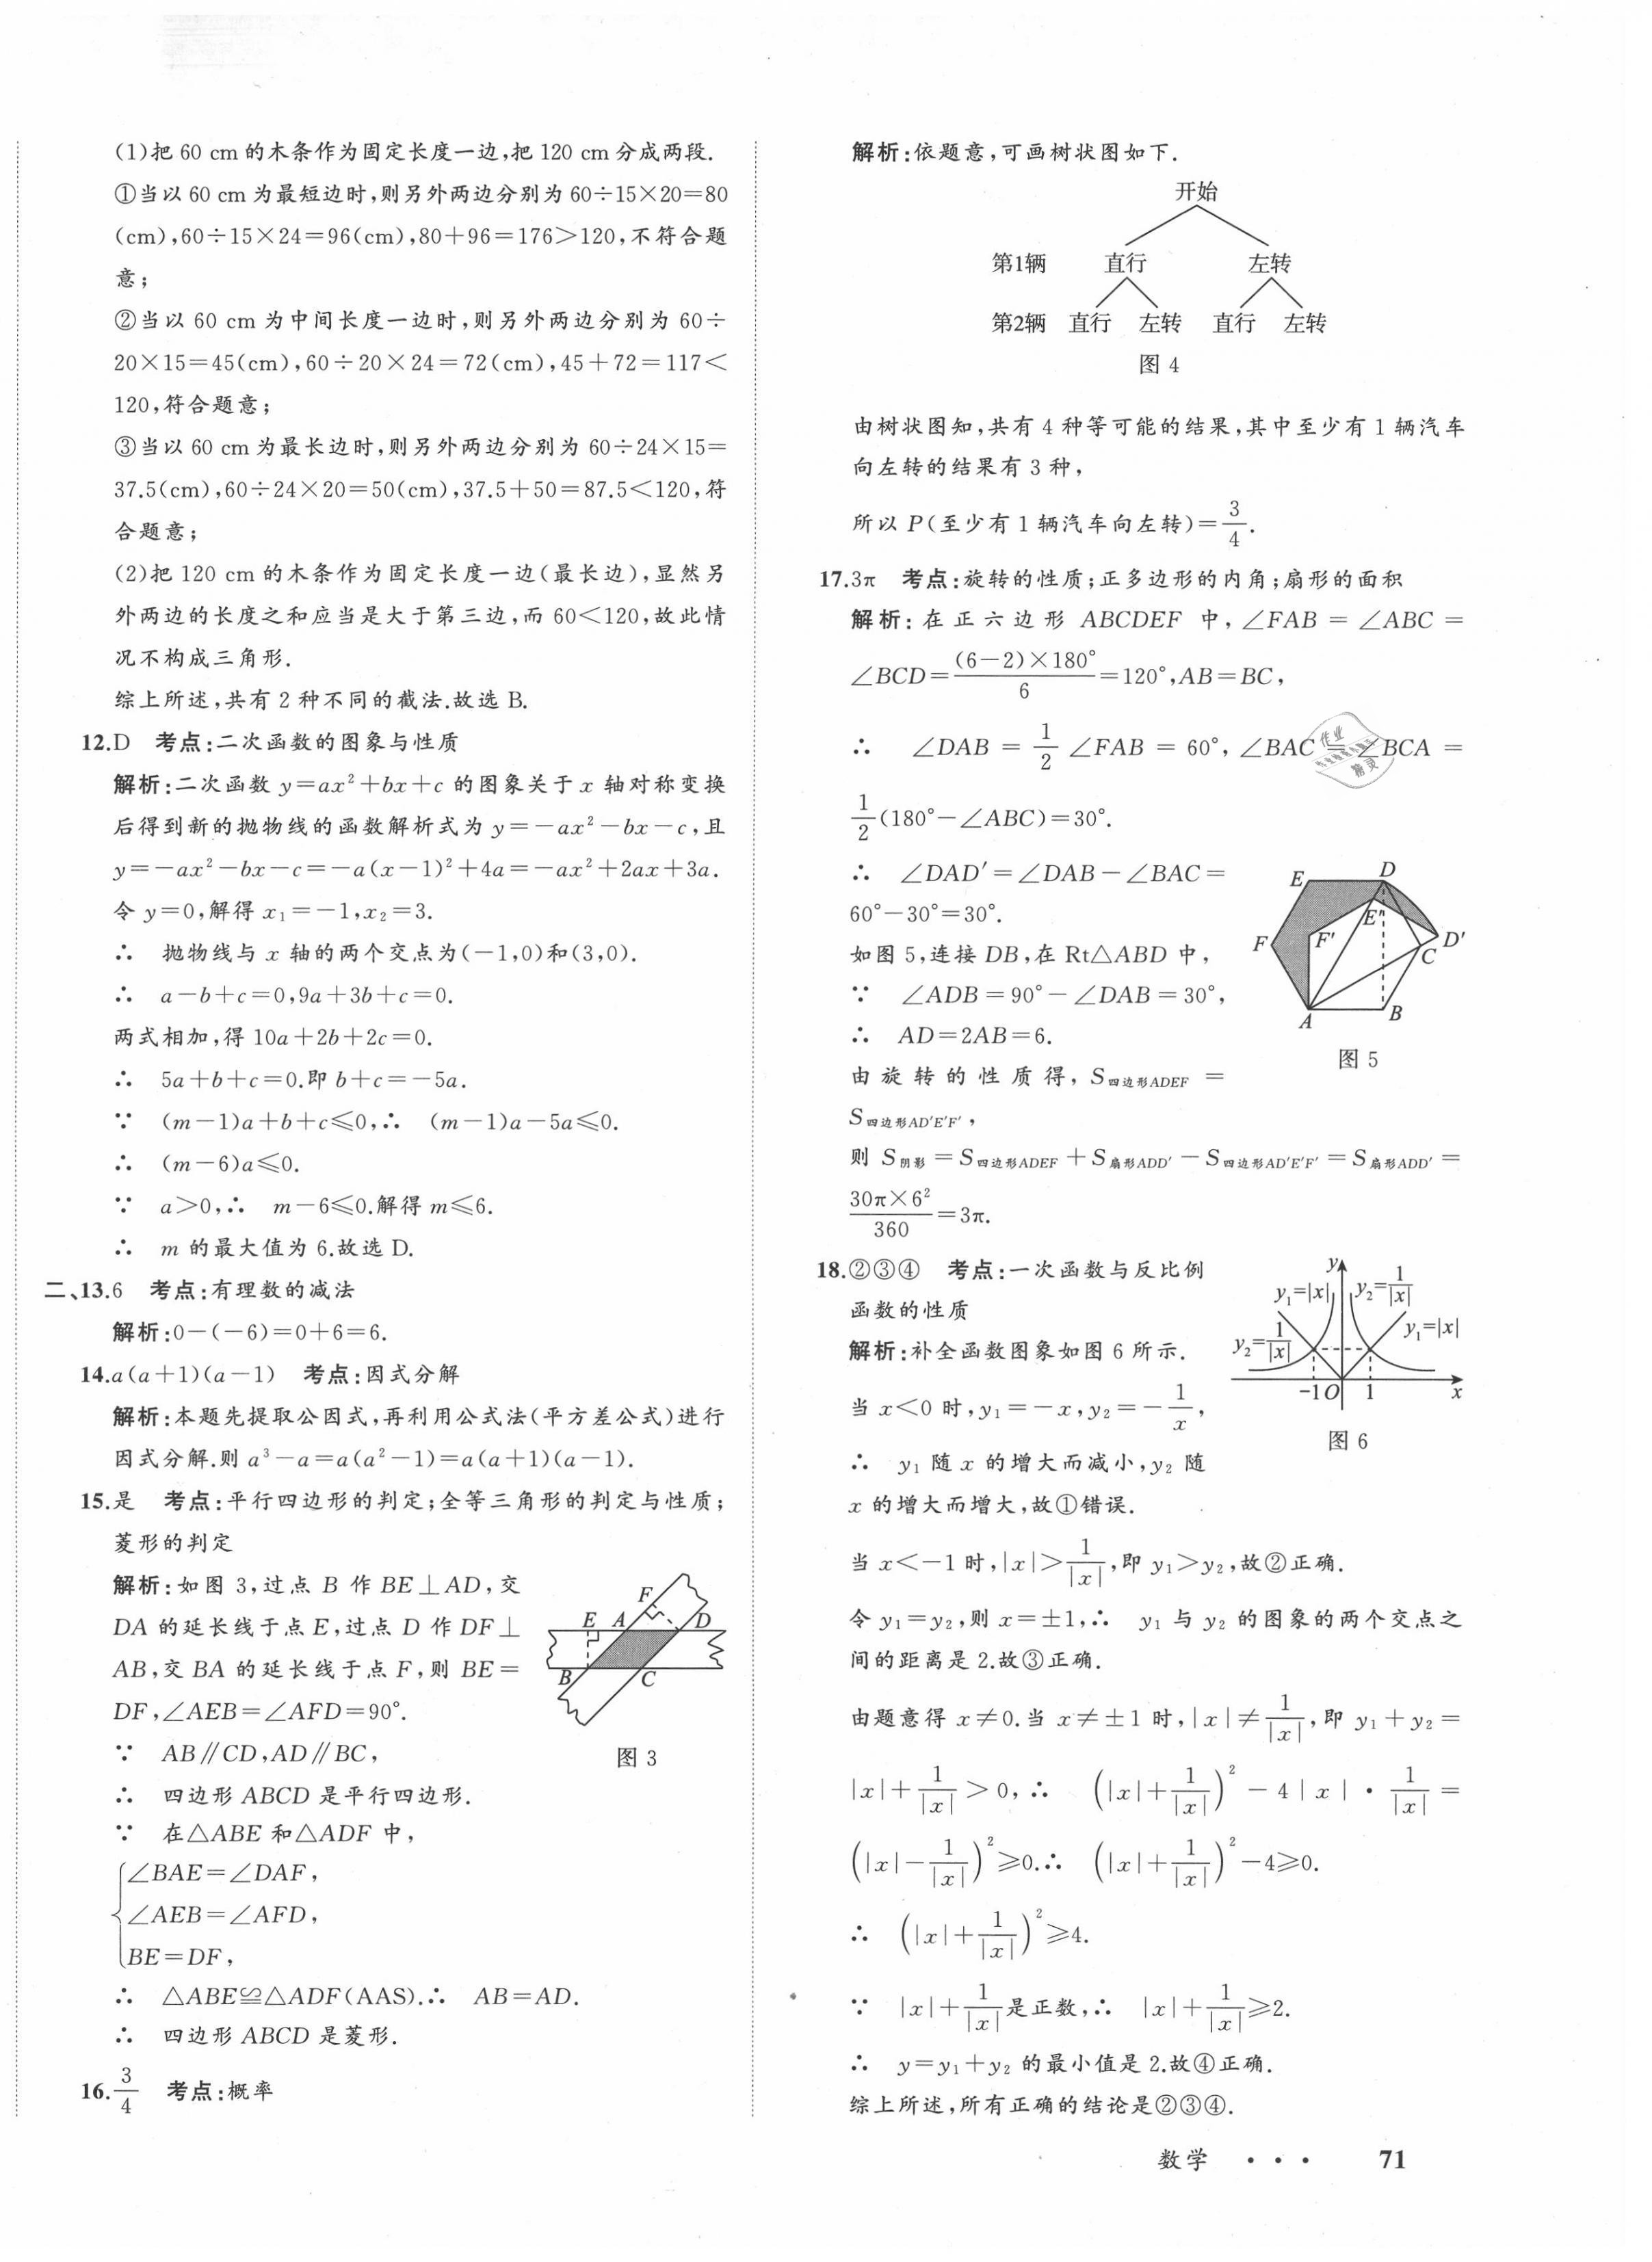 (1)把 60 cm 的木条作为固定长度一边,把 120 cm 分成两段.
①当以 60 cm 为最短边时,则另外两边分别为 60÷15×20=80
(cm),60÷15×24=96(cm),80+96=176>120,不符合题
意;
②当以 60 cm 为中间长度一边时,则另外两边分别为 60÷
20×15=45(cm),60÷20×24=72(cm),45+72=117<
120,符合题意;
③当以 60 cm 为最长边时,则另外两边分别为 60÷24×15=
37.5(cm),60÷24×20=50(cm),37.5+50=87.5<120,符
合题意;
(2)把 120 cm 的木条作为固定长度一边(最长边),显然另
外两边的长度之和应当是大于第三边,而 60<120,故此情
况不构成三角形.
综上所述,共有 2 种不同的截法.故选 B.
12.D 考点:二次函数的图象与性质
解析:二次函数 y=ax²+bx+c 的图象关于 x 轴对称变换
后得到新的抛物线的函数解析式为 y=-ax²-bx-c,且
y=-ax²-bx-c=-a(x-1)²+4a=-ax²+2ax+3a.
令 y=0,解得 x₁=-1,x₂=3.
∴ 抛物线与 x 轴的两个交点为(-1,0)和(3,0).
∴ a-b+c=0,9a+3b+c=0.
两式相加,得 10a+2b+2c=0.
∴ 5a+b+c=0.即 b+c=-5a.
∵ (m-1)a+b+c≤0,∴ (m-1)a-5a≤0.
∴ (m-6)a≤0.
∵ a>0,∴ m-6≤0.解得 m≤6.
∴ m 的最大值为 6.故选 D.
二、13.6 考点:有理数的减法
解析:0-(-6)=0+6=6.
14.a(a+1)(a-1) 考点:因式分解
解析:本题先提取公因式,再利用公式法(平方差公式)进行
因式分解.则 a³-a=a(a²-1)=a(a+1)(a-1).
15.是 考点:平行四边形的判定;全等三角形的判定与性质;
菱形的判定
解析:如图 3,过点 B 作 BE⊥AD,交
DA 的延长线于点 E,过点 D 作 DF⊥
AB,交 BA 的延长线于点 F,则 BE=
DF,∠AEB=∠AFD=90°.
F
E A D
B C
图 3
∵ AB∥CD,AD∥BC,
∴ 四边形 ABCD 是平行四边形.
∵ 在△ABE 和△ADF 中,
{∠BAE=∠DAF,
∠AEB=∠AFD,
BE=DF,
∴ △ABE≌△ADF(AAS).∴ AB=AD.
∴ 四边形 ABCD 是菱形.
16.3/4 考点:概率
解析:依题意,可画树状图如下.
开始
第1辆 直行 左转
第2辆 直行 左转 直行 左转
图 4
由树状图知,共有 4 种等可能的结果,其中至少有 1 辆汽车
向左转的结果有 3 种,
所以 P(至少有 1 辆汽车向左转)=3/4.
17.3π 考点:旋转的性质;正多边形的内角;扇形的面积
解析:在正六边形 ABCDEF 中,∠FAB=∠ABC=
∠BCD=(6-2)×180°/6=120°,AB=BC,
∴ ∠DAB=1/2∠FAB=60°,∠BAC=∠BCA=
1/2(180°-∠ABC)=30°.
∴ ∠DAD′=∠DAB-∠BAC=
60°-30°=30°.
如图 5,连接 DB,在 Rt△ABD 中,
∵ ∠ADB=90°-∠DAB=30°,
∴ AD=2AB=6.
E D
E′
F F′ D′
C
A B
图 5
由旋转的性质得,S四边形ADEF=
S四边形AD′E′F′,
则 S阴影=S四边形ADEF+S扇形ADD′-S四边形AD′E′F′=S扇形ADD′=
30π×6²/360=3π.
18.②③④ 考点:一次函数与反比例
函数的性质
解析:补全函数图象如图 6 所示.
当 x<0 时,y₁=-x,y₂=-1/x,
∴ y₁ 随 x 的增大而减小,y₂ 随
x 的增大而增大,故①错误.
y
y₁=|x| y₂=1/|x|
y₂=1/|x| y₁=|x|
-1 O 1 x
图 6
当 x<-1 时,|x|>1/|x|,即 y₁>y₂,故②正确.
令 y₁=y₂,则 x=±1,∴ y₁ 与 y₂ 的图象的两个交点之
间的距离是 2.故③正确.
由题意得 x≠0.当 x≠±1 时,|x|≠1/|x|,即 y₁+y₂=
|x|+1/|x|>0,∴ (|x|+1/|x|)²-4|x|·1/|x|=
(|x|-1/|x|)²≥0.∴ (|x|+1/|x|)²-4≥0.
∴ (|x|+1/|x|)²≥4.
∵ |x|+1/|x|是正数,∴ |x|+1/|x|≥2.
∴ y=y₁+y₂ 的最小值是 2.故④正确.
综上所述,所有正确的结论是②③④.
数学 · · · 71
作业
精灵